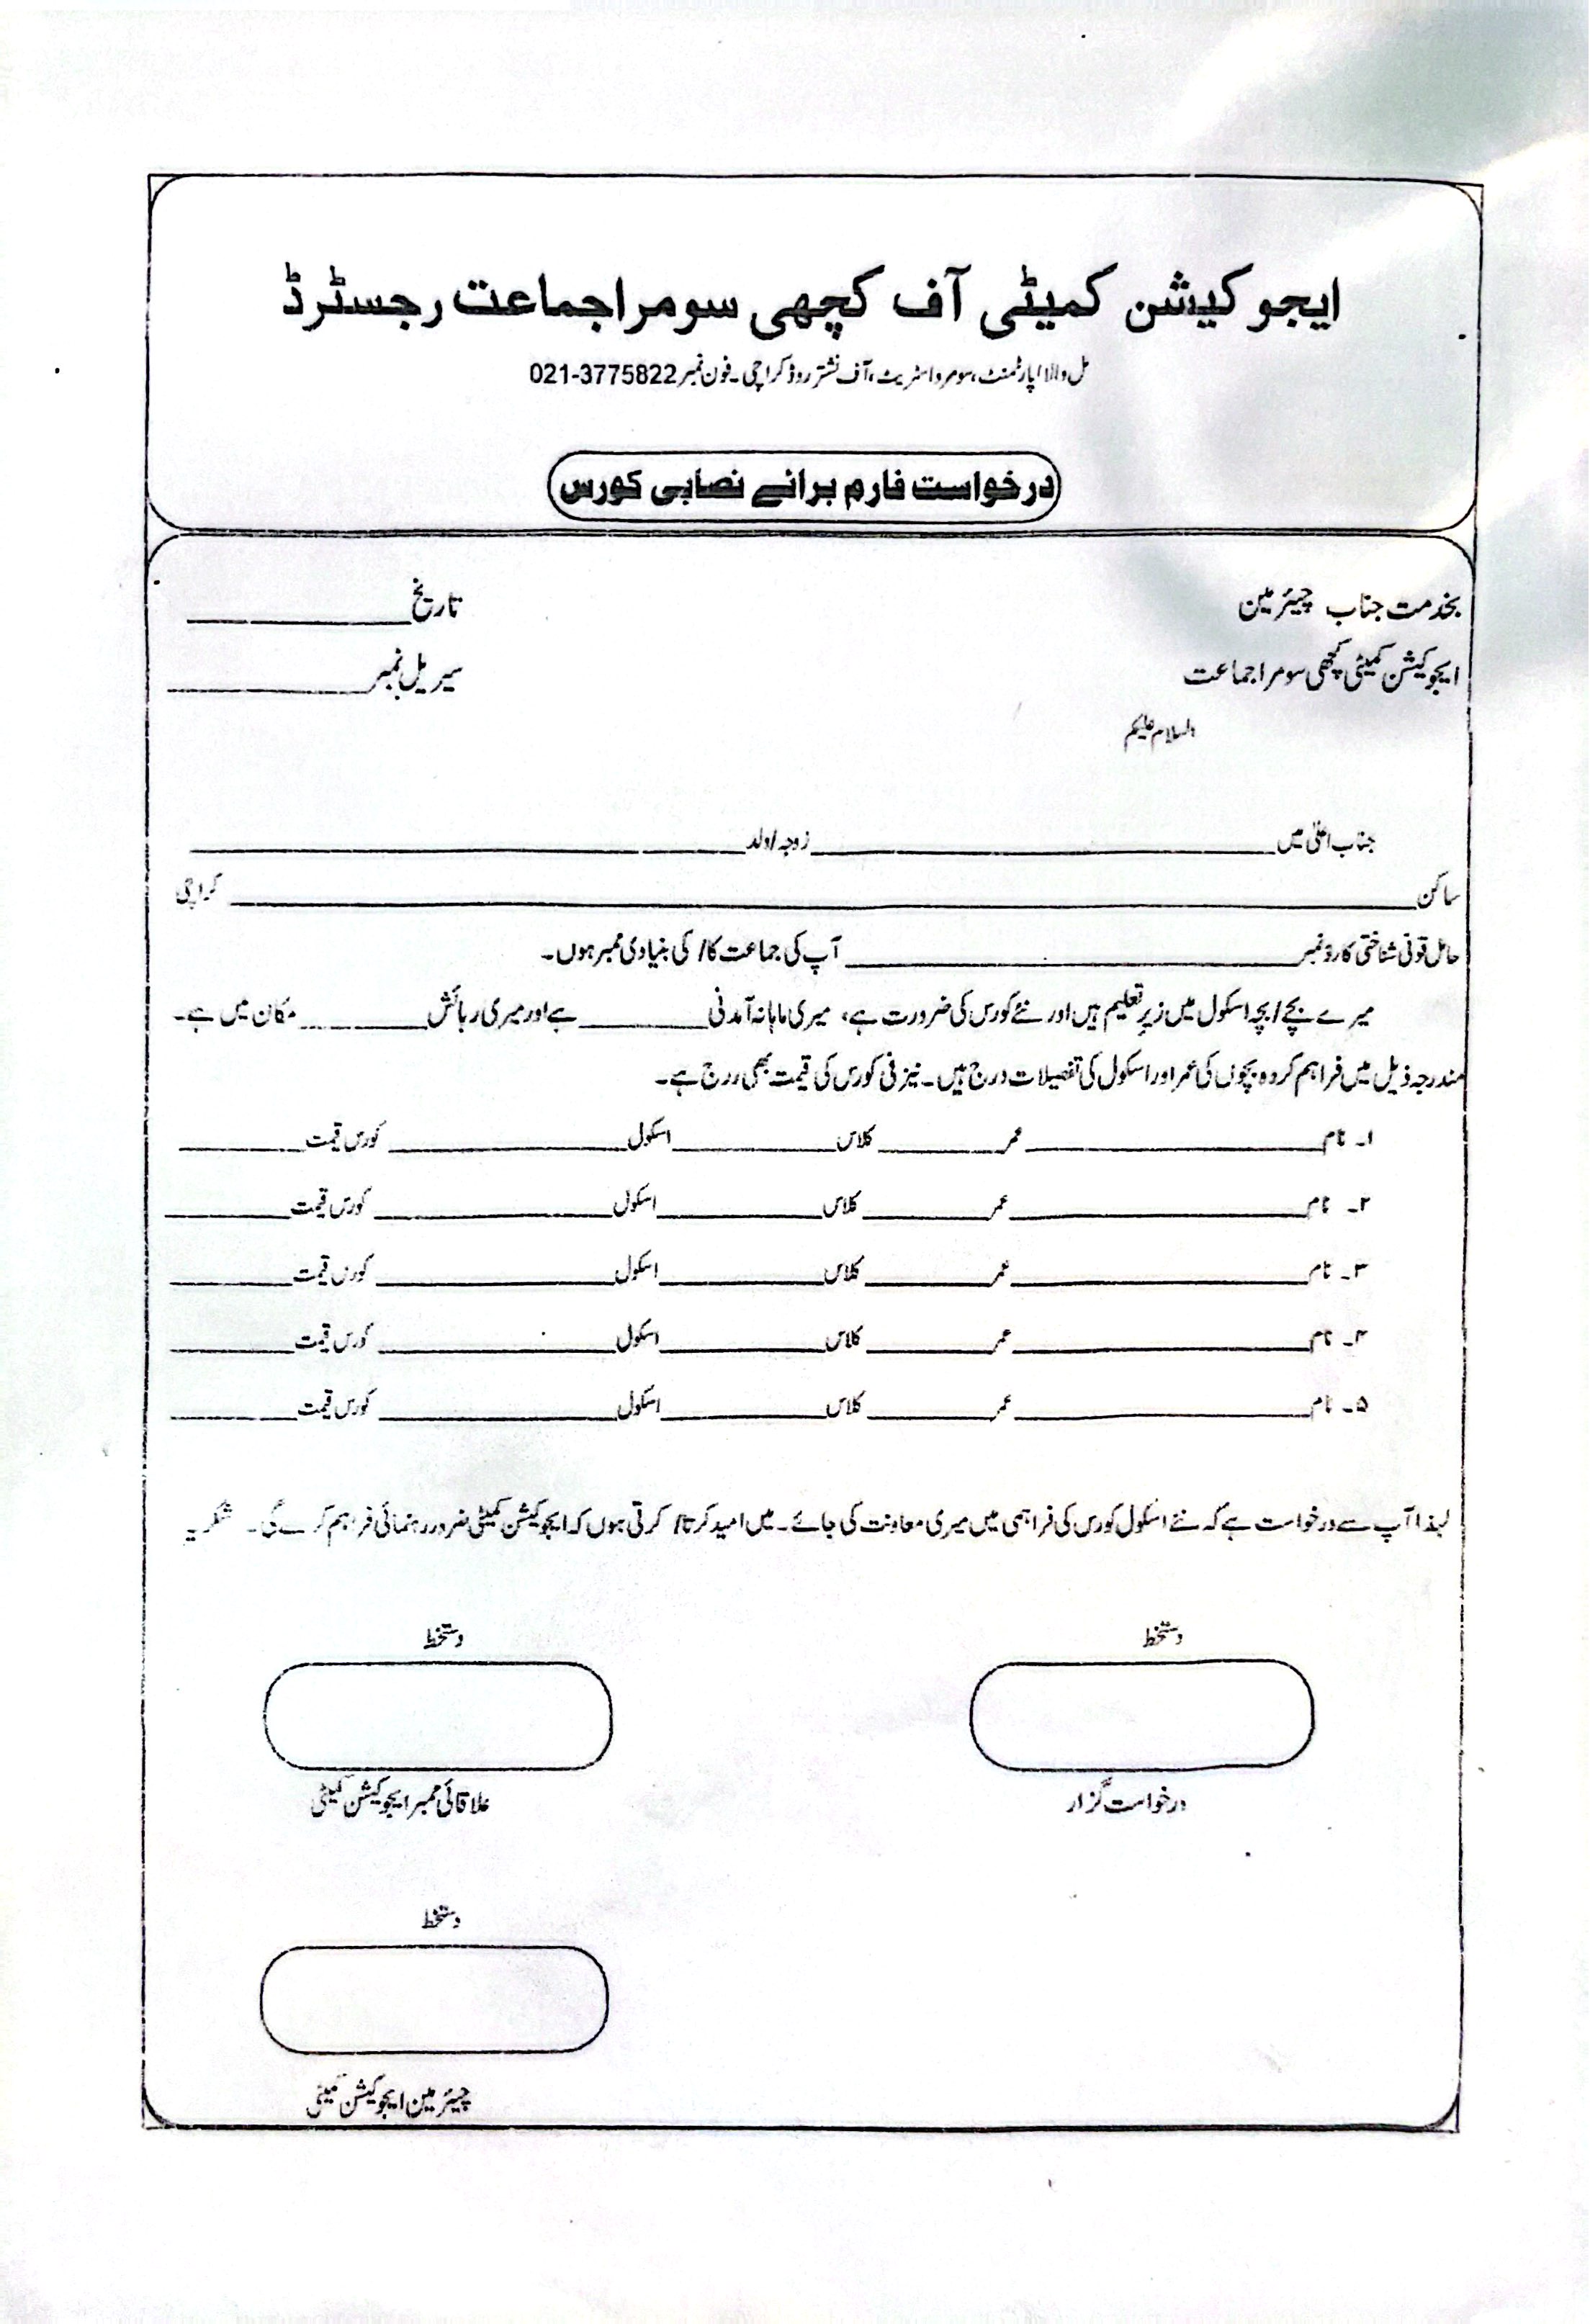 ایجوکیشن کمیٹی آف کچھی سومرا جماعت رجسٹرڈ
مل والا اپارٹمنٹ، سومرو اسٹریٹ، آف نشتر روڈ کراچی۔ فون نمبر 021-3775822
درخواست فارم برائے نصابی کورس
بخدمت جناب چیئرمین تاریخ
ایجوکیشن کمیٹی کچھی سومرا جماعت سیریل نمبر
السلام علیکم
جناب اعلیٰ میں زوجہ/ولد
ساکن کراچی
حامل قومی شناختی کارڈ نمبر آپ کی جماعت کا/ کی بنیادی ممبر ہوں۔
میرے بچے/بچہ اسکول میں زیرِ تعلیم ہیں اور نئے کورس کی ضرورت ہے، میری ماہانہ آمدنی ہے اور میری رہائش مکان میں ہے۔
مندرجہ ذیل میں فراہم کردہ بچوں کی عمر اور اسکول کی تفصیلات درج ہیں۔ نیز فی کورس کی قیمت بھی درج ہے۔
۱۔ نام عمر کلاس اسکول کورس قیمت
۲۔ نام عمر کلاس اسکول کورس قیمت
۳۔ نام عمر کلاس اسکول کورس قیمت
۴۔ نام عمر کلاس اسکول کورس قیمت
۵۔ نام عمر کلاس اسکول کورس قیمت
لہذا آپ سے درخواست ہے کہ نئے اسکول کورس کی فراہمی میں میری معاونت کی جائے۔ میں امید کرتا/ کرتی ہوں کہ ایجوکیشن کمیٹی ضرور رہنمائی فراہم کرے گی۔ شکریہ
دستخط دستخط
درخواست گزار علاقائی ممبر ایجوکیشن کمیٹی
دستخط
چیئرمین ایجوکیشن کمیٹی